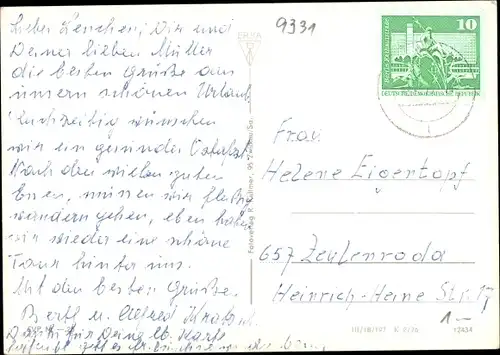 Liebes Lenchen! Dir und
Deiner lieben Mutter
die besten Grüße aus
unserm schönen Urlaub
Gleichzeitig wünschen
wir ein gesundes Osterfest
Nach dem vielen guten
Essen, müssen wir fleißig
wandern gehen, eben haben
wir wieder eine schöne
Tour hinter uns.
Mit den besten Grüßen
Berth u. Alfred
für Deine lb. Karte
9331
10
DEUTSCHE DEMOKRATISCHE REPUBLIK
Frau
Helene Eigentopf
657 Zeulenroda
Heinrich-Heine Str. 17
1—
III/18/197 K 2/76 12434